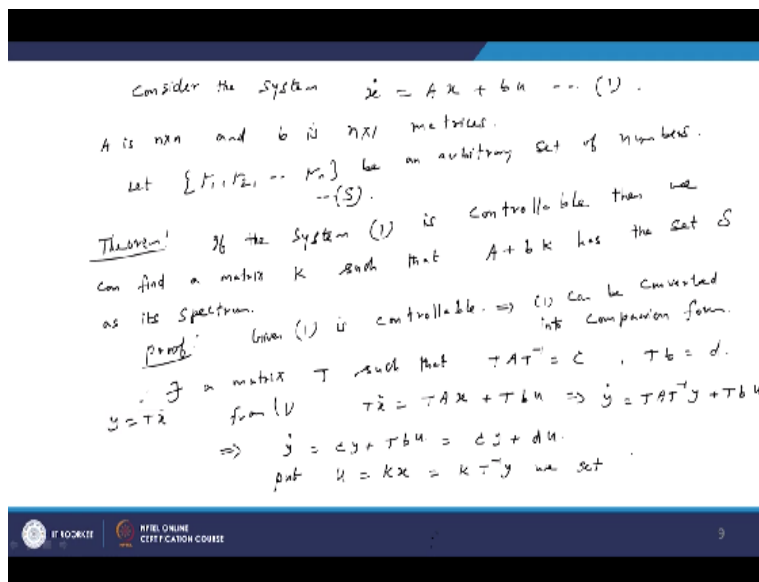 Consider the system ẋ = Ax + bu --- (1).
A is n×n and b is n×1 matrices.
Let {r₁, r₂, -- rₙ} be an arbitrary set of numbers.
--(S).
Theorem: If the system (1) is controllable then we
can find a matrix K such that A + bK has the set S
as its spectrum.
Proof: Given (1) is controllable. ⇒ (1) can be converted
into companion form.
∴ ∃ a matrix T such that TAT⁻¹ = C, Tb = d.
y = Tx from (1) Tẋ = TAx + Tbu ⇒ ẏ = TAT⁻¹y + Tbu
⇒ ẏ = Cy + Tbu = Cy + du.
put u = Kx = KT⁻¹y we get
IIT ROORKEE NPTEL ONLINE CERTIFICATION COURSE 9